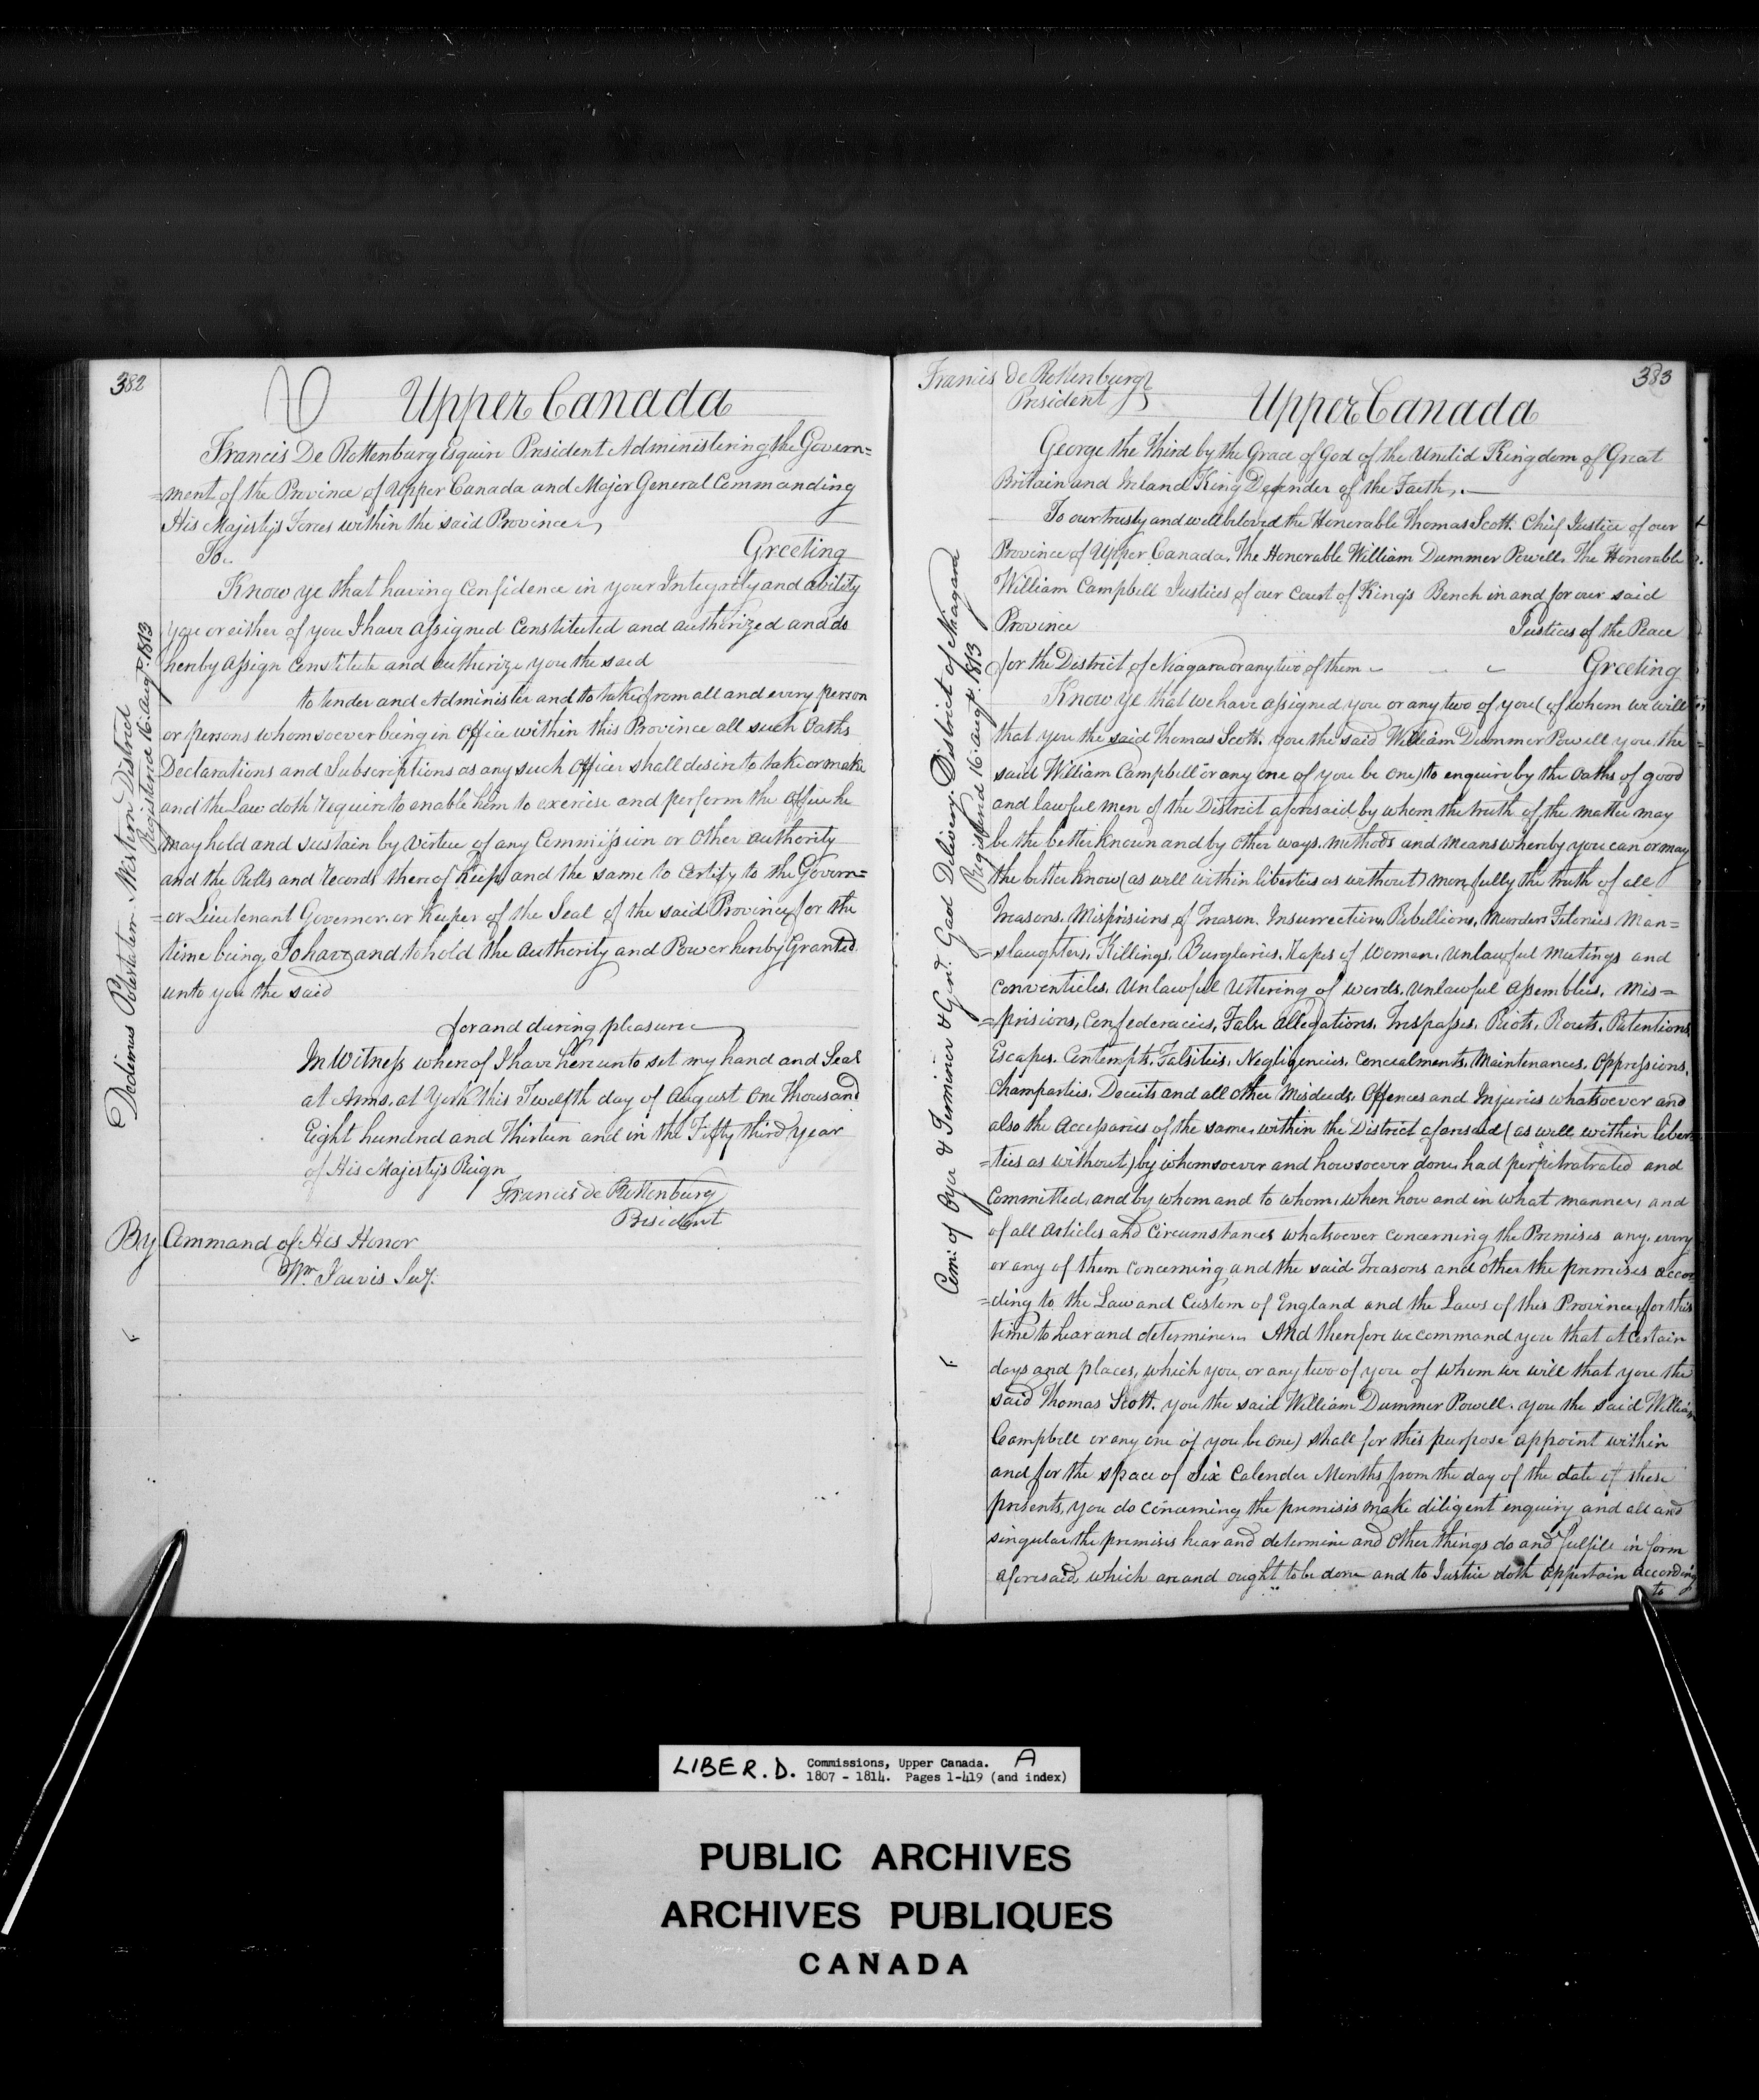 382
Upper Canada
Francis De Rottenburg Esquire President Administering the Govern=
=ment of the Province of Upper Canada and Major General Commanding
His Majesty's Forces within the said Province
To
Greeting
Know ye that having Confidence in your Integrity and ability
you or either of you I have assigned Constituted and authorized and do
hereby assign Constitute and authorize you the said
to tender and Administer and to take from all and every person
or persons whomsoever being in Office within this Province all such Oaths
Declarations and Subscriptions as any such Officer shall desire to take or make
and the Law doth require to enable him to exercise and perform the Office he
may hold and sustain by virtue of any Commission or other authority
and the Rolls and records thereof Keep and the same to Certify to the Govern=
=or Lieutenant Governor or Keeper of the Seal of the said Province for the
time being, To have and to hold the authority and Power hereby Granted
unto you the said
for and during pleasure
In Witness whereof I have hereunto set my hand and Seal
at Arms, at York this Twelfth day of August One Thousand
Eight hundred and Thirteen and in the Fifty third Year
of His Majesty's Reign
Francis de Rottenburg
President
By Command of His Honor
Wm Jarvis Secy.
Dedimus Potestatem Western District
Registered 16: augt. 1813
Francis de Rottenburg
President
383
Upper Canada
George the Third by the Grace of God of the United Kingdom of Great
Britain and Ireland King Defender of the Faith,
To our trusty and well beloved the Honorable Thomas Scott. Chief Justice of our
Province of Upper Canada. The Honorable William Dummer Powell. The Honorable
William Campbell Justices of our Court of King's Bench in and for our said
Province Justices of the Peace
for the District of Niagara or any two of them Greeting
Know ye that we have assigned you or any two of you (of whom we will
that you the said Thomas Scott. you the said William Dummer Powell you the
said William Campbell or any one of you be one) to enquire by the Oaths of good
and lawful men of the District aforesaid by whom the truth of the matter may
be the better known and by other ways. methods and means whereby you can or may
the better know (as well within liberties as without) more fully the truth of all
Treasons. Misprisions of Treason. Insurrections, Rebellions, Murders Felonies Man=
=slaughters, Killings, Burglaries. Rapes of Women. Unlawful Meetings and
Conventicles. Unlawful Uttering of words. Unlawful Assemblies, Mis=
=prisions, Confederacies, False allegations. Trespasses. Riots. Routs. Retentions
Escapes. Contempts. Falsities. Negligencies. Concealments. Maintenances. Oppressions.
Champarties. Deceits and all other Misdeeds. Offences and Injuries whatsoever and
also the Accessaries of the same within the District aforesaid (as well within liber=
=ties as without) by whomsoever and howsoever done, had perpitratrated and
Committed, and by whom and to whom, when how and in what manner, and
of all articles and Circumstances whatsoever concerning the Premises any, every
or any of them concerning, and the said Treasons and other the premises accor=
=ding to the Law and Custom of England and the Laws of this Province, for this
time to hear and determine. And therefore we command you that at certain
days and places, which you or any two of you of whom we will that you the
said Thomas Scott. you the said William Dummer Powell. you the said William
Campbell or any one of you be one) shall for this purpose appoint within
and for the space of Six Calender Months from the day of the date of these
presents, you do concerning the premises make diligent enquiry and all and
singular the premises hear and determine and other things do and fulfill in form
aforesaid which are and ought to be done and to Justice doth appertain according
to
Com: of Oyer & Terminer & Genl. Gaol Delivery. District of Niagara
Registered 16: augt. 1813
LIBER. D. Commissions, Upper Canada. A
1807 - 1814. Pages 1-419 (and index)
PUBLIC ARCHIVES
ARCHIVES PUBLIQUES
CANADA